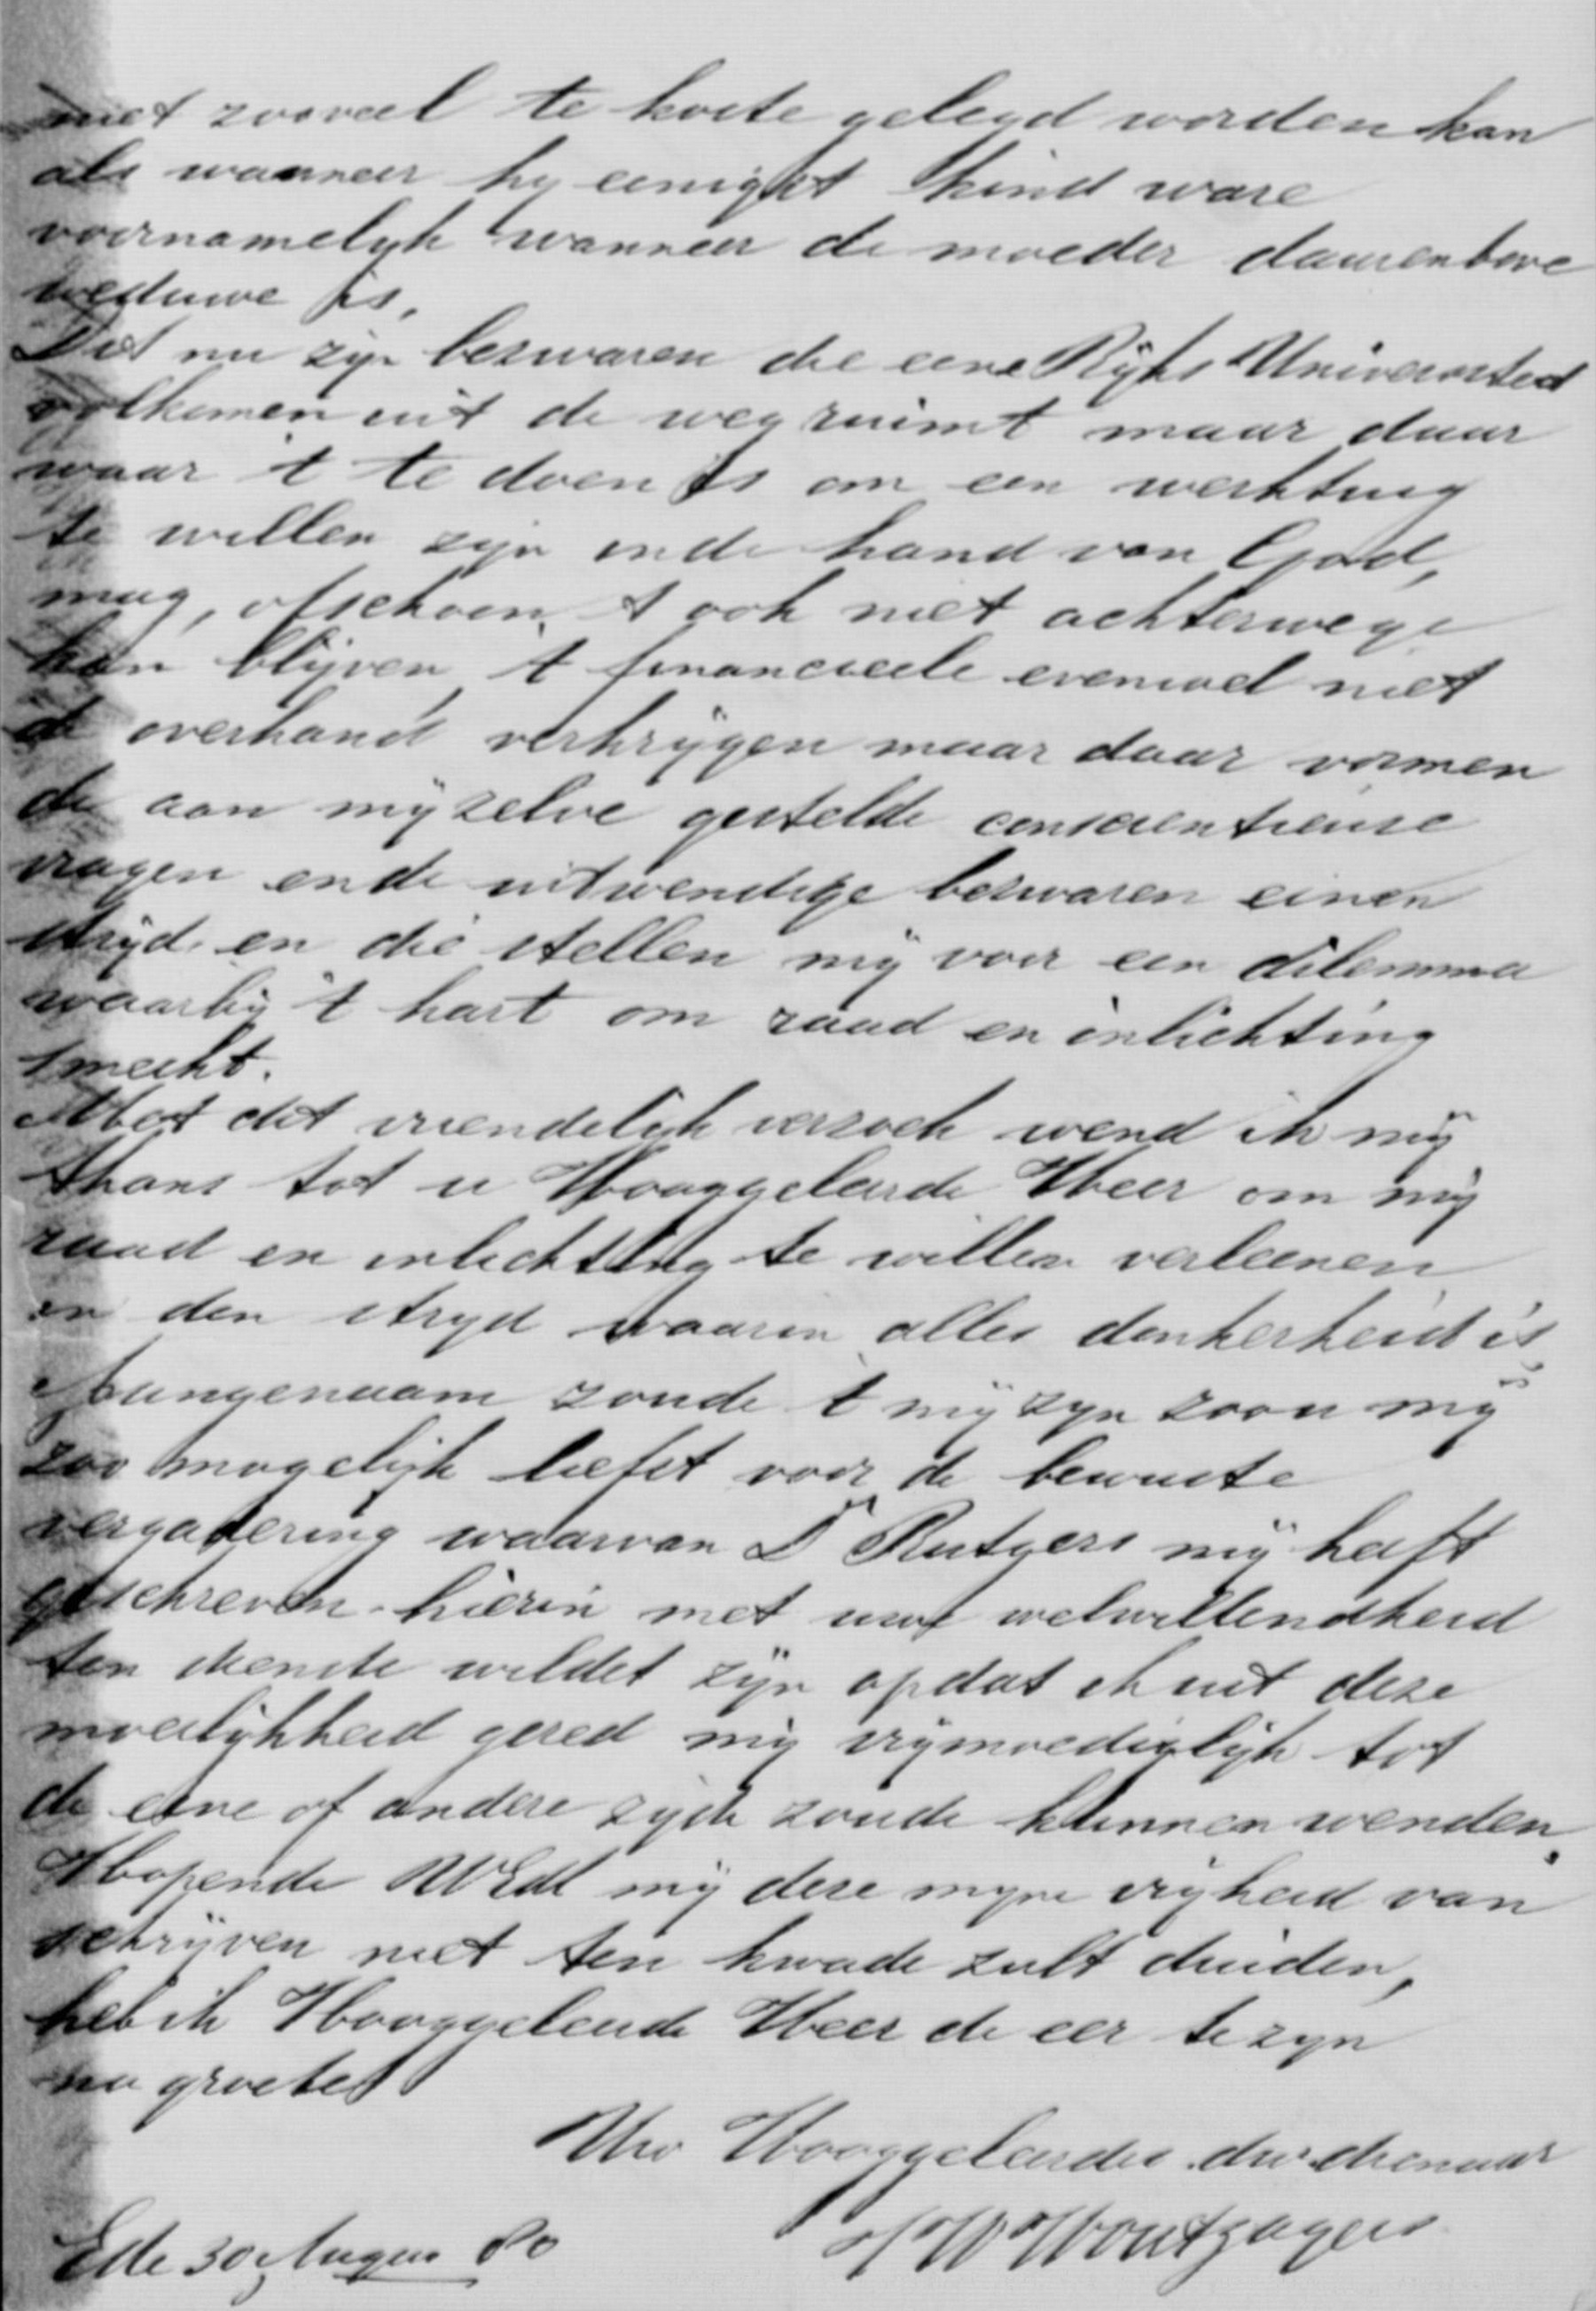 niet zooveel te koste gelegd worden kan
als wanneer hy eenigst kind ware
voornamelyk wanneer de moeder daarenbove
weduwe is.
Dit nu zyn bezwaren die eene Ryks Universiteit
volkomen uit de weg ruimt maar daar
waar 't te doen is om een werktuig
te willen zijn in de hand van God,
mag, ofschoon 't ook niet achterwege
kan blijven, 't financieele evenwel niet
de overhand verkrijgen maar daar vormen
de aan mijzelve gestelde conscientieuse
vragen en de uitwendige bezwaren einen
stryd en die stellen mij voor een dilemma
waarbij 't hart om raad en inlichting
smeekt.
Met dit vriendelijk verzoek wend ik mij
thans tot u Hooggeleerde Heer om mij
raad en inlichting te willen verleenen
in den stryd waarin alles donkerheid is
Aangenaam zoude 't mij zyn zoo u mij
zoo mogelijk liefst voor de bewuste
vergadering waarvan Dr Rutgers mij heeft
geschreven hierin met uwe welwillendheid
ten dienste wildet zijn opdat ik uit deze
moeilykheid gered mij vrymoediglijk tot
de eene of andere zyde zoude kunnen wenden.
Hopende UWEd mij deze myne vryheid van
schrijven niet ten kwade zult duiden,
heb ik Hooggeleerde Heer de eer te zyn
na groete
Uw Hooggeleerdes dw. dienaar
HW Houtzagers
Ede 30 Augs 80